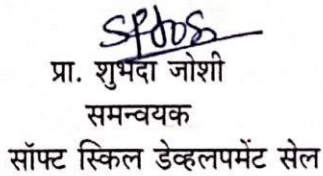 प्रा. शुभदा जोशी
समन्वयक
सॉफ्ट स्किल डेव्हलपमेंट सेल